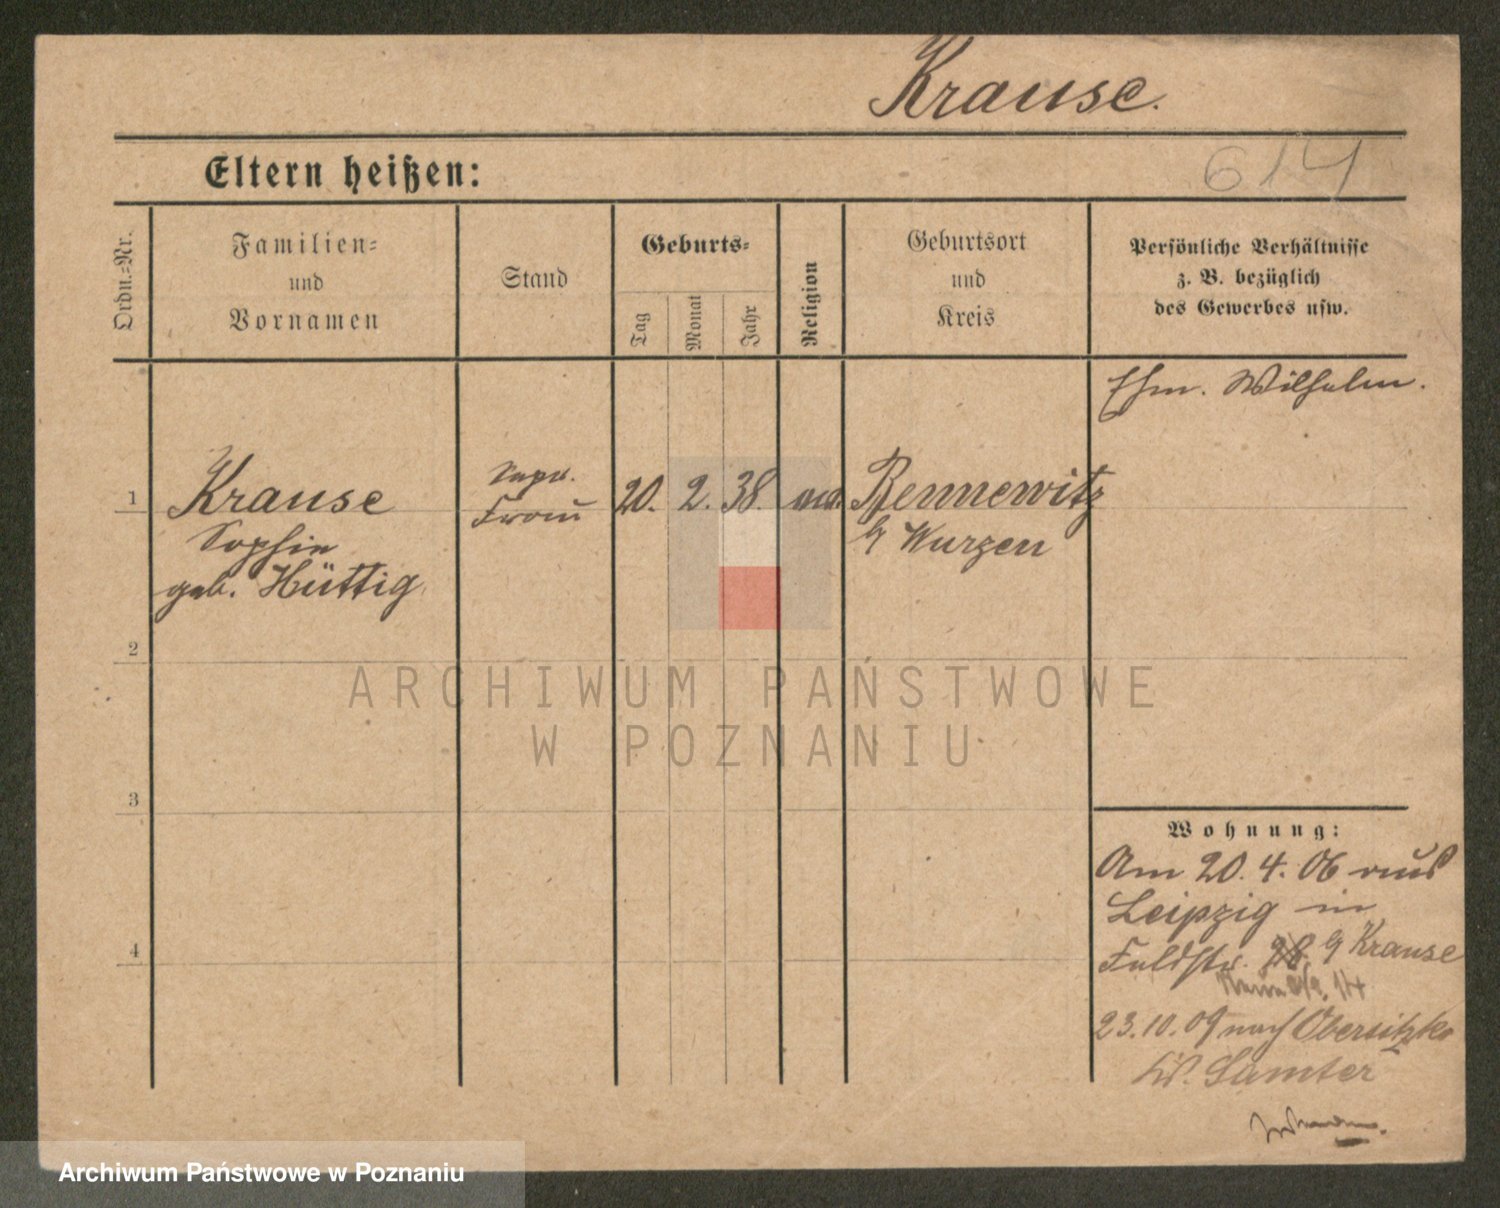 Krause.
614
Eltern heißen:
Ordn.=Nr.
Familien=
und
Vornamen
Stand
Geburts=
Tag
Monat
Jahr
Religion
Geburtsort
und
Kreis
Persönliche Verhältnisse
z. B. bezüglich
des Gewerbes usw.
Ehm. Wilhelm.
1
Krause
Sophie
geb. Hüttig
Frau
20. 2. 38.
Bennewitz
b/ Wurzen
2
3
4
Wohnung:
Am 20. 4. 06 aus
Leipzig in
Feldstr. 28. b/ Krause
23.10.09 nach Obersitzko
Kr. Samter
ARCHIWUM PAŃSTWOWE
W POZNANIU
Archiwum Państwowe w Poznaniu